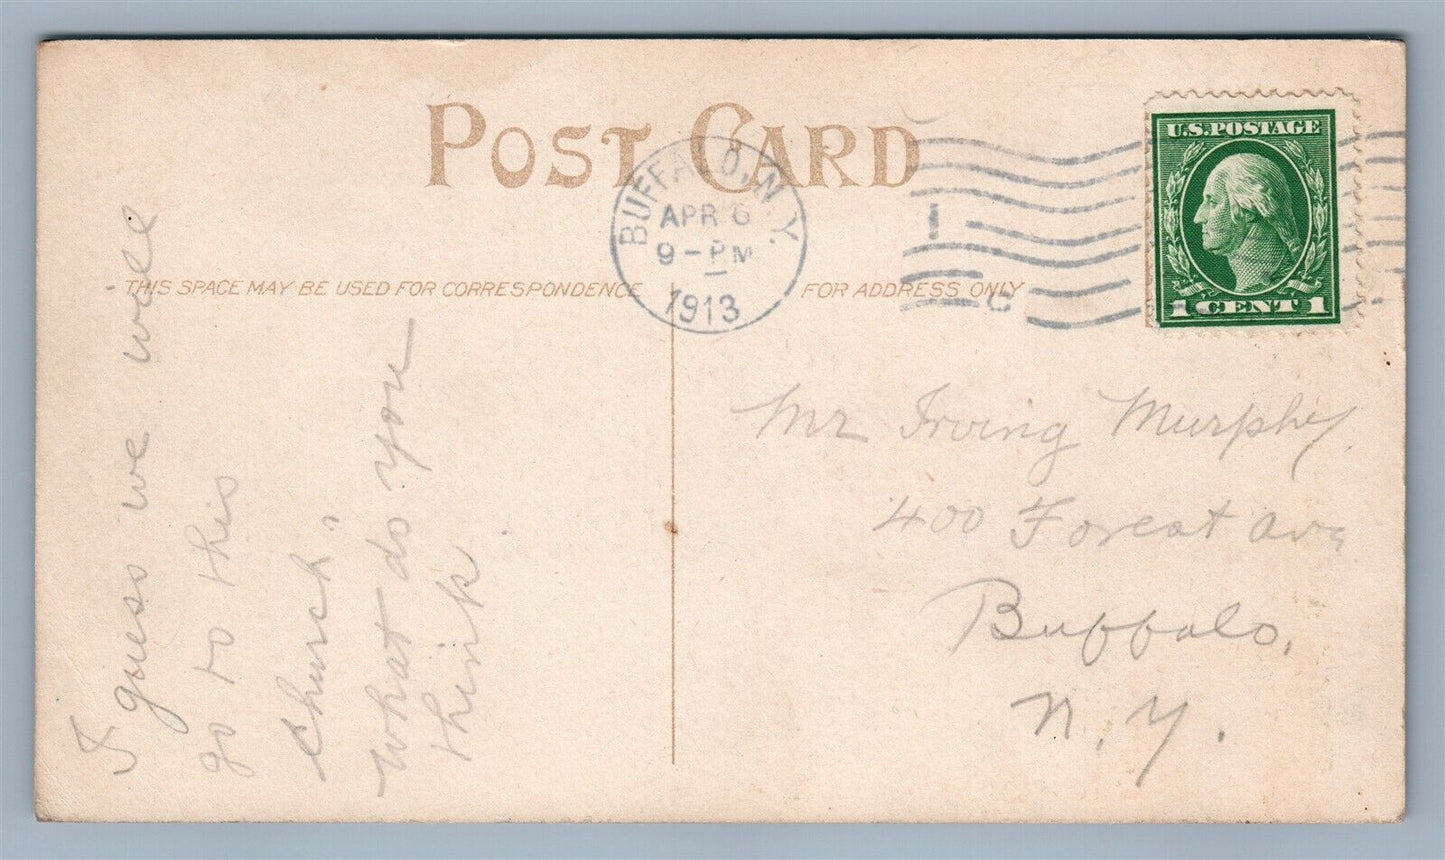 POST CARD
BUFFALO, N.Y.
APR 6
9-PM
1913
1
C
U.S. POSTAGE
1 CENT 1
THIS SPACE MAY BE USED FOR CORRESPONDENCE
FOR ADDRESS ONLY
I guess we will
go to this
church.
What do you
think.
Mr Irving Murphy.
400 Forest Ave
Buffalo,
N.Y.